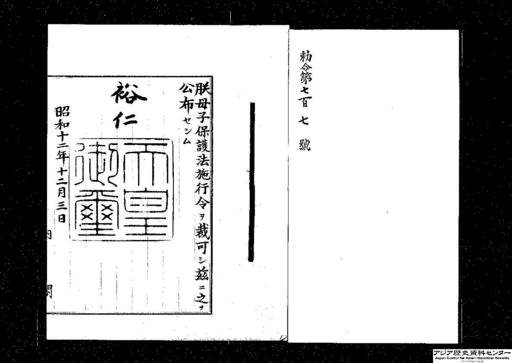 勅令第七百七號
朕母子保護法施行令ヲ裁可シ茲ニ之ヲ
公布セシム
裕仁
天皇
御璽
昭和十二年十二月三日
内閣
アジア歴史資料センター
Japan Center for Asian Historical Records